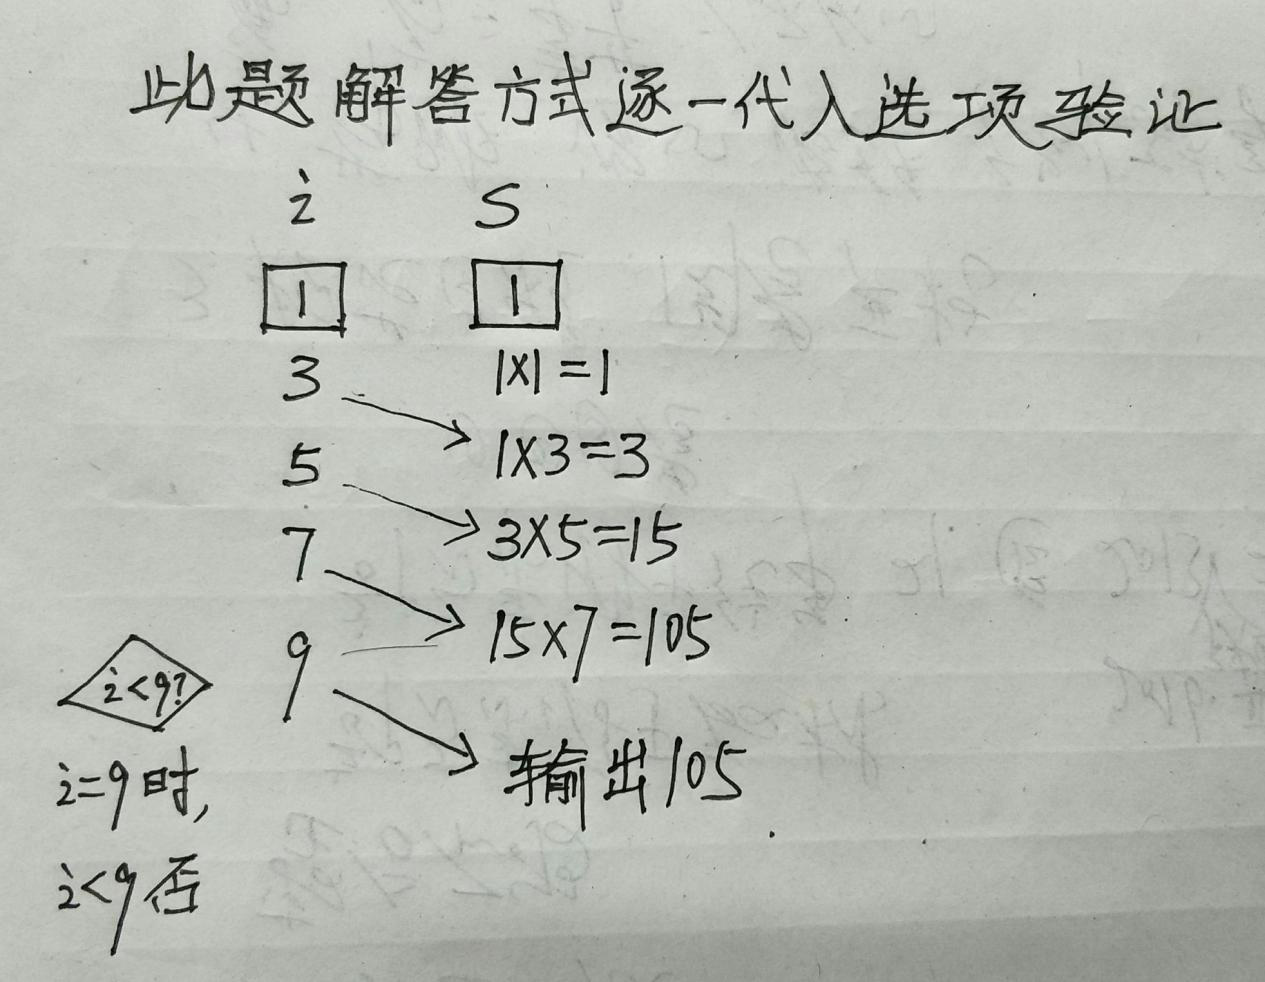 此题解答方式逐一代入选项验证
i S
1 1
3 1×1=1
5 1×3=3
7 3×5=15
9 15×7=105
i<9?
输出105
i=9时,
i<9否